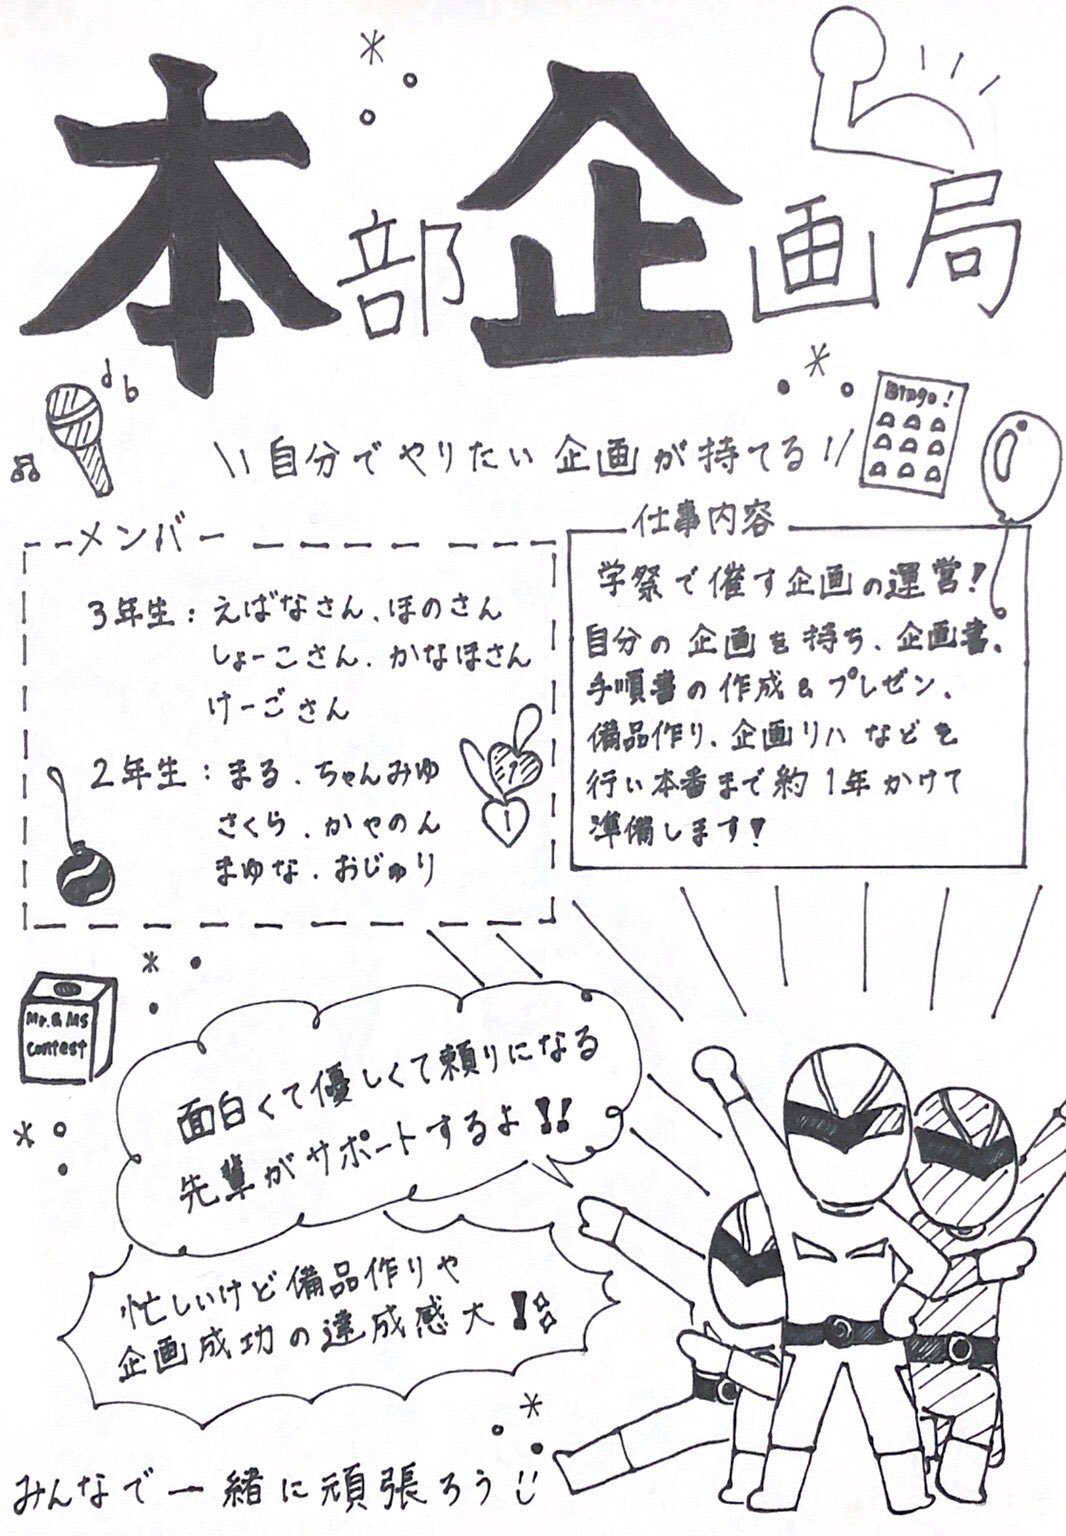 本部企画局
Bingo!
\\自分でやりたい企画が持てる//
メンバー
3年生：えばなさん、ほのさん
しょーこさん、かなほさん
けーごさん
2年生：まる、ちゃんみゆ
さくら、かやのん
まゆな、おじゅり
1
1
仕事内容
学祭で催す企画の運営！
自分の企画を持ち、企画書、
手順書の作成&プレゼン、
備品作り、企画リハなどを
行い本番まで約1年かけて
準備します！
Mr.&Ms
Contest
面白くて優しくて頼りになる
先輩がサポートするよ!!
忙しいけど備品作りや
企画成功の達成感大！
みんなで一緒に頑張ろう